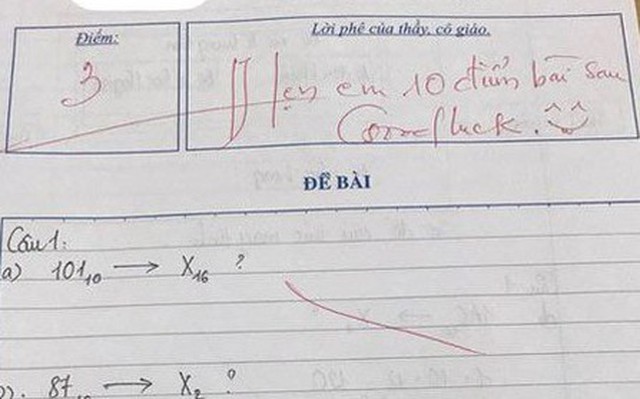 Điểm:
Lời phê của thầy, cô giáo.
3
Hẹn em 10 điểm bài sau
Good luck.
ĐỀ BÀI
Câu 1:
a) 101₁₀ → X₁₆ ?
87₁₀ → X₂ ?